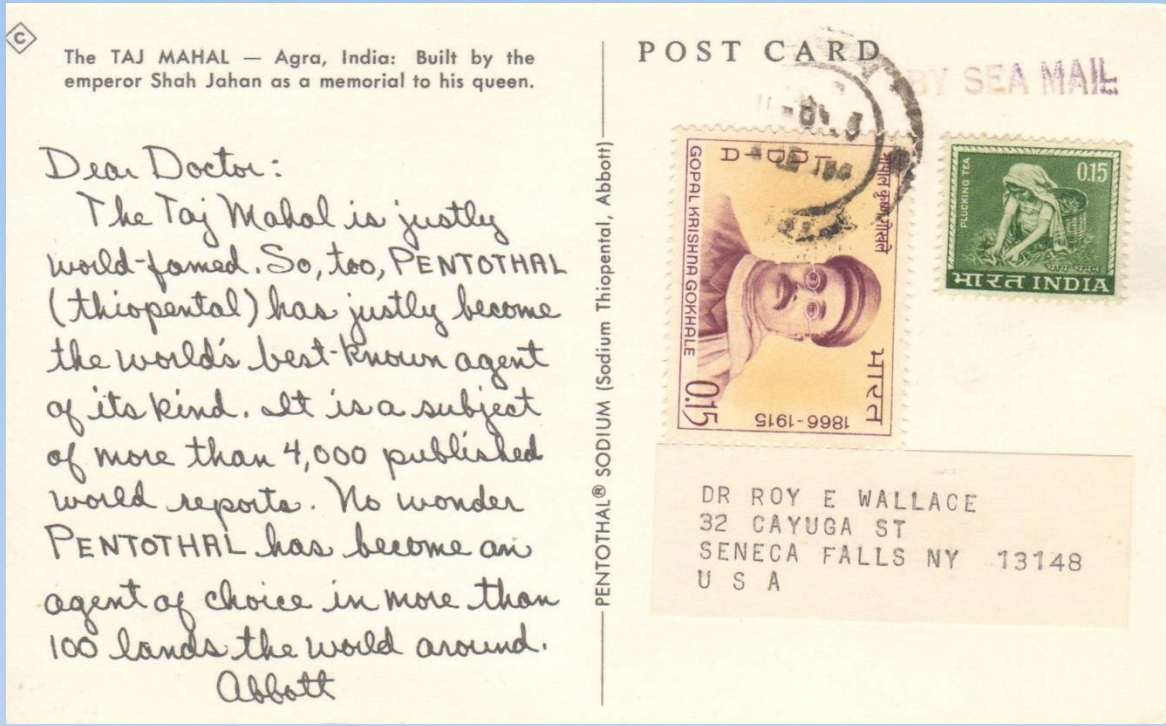 C
The TAJ MAHAL — Agra, India: Built by the
emperor Shah Jahan as a memorial to his queen.
Dear Doctor:
The Taj Mahal is justly
world-famed. So, too, PENTOTHAL
(thiopental) has justly become
the world's best-known agent
of its kind. It is a subject
of more than 4,000 published
world reports. No wonder
PENTOTHAL has become an
agent of choice in more than
100 lands the world around.
Abbott
PENTOTHAL® SODIUM (Sodium Thiopental, Abbott)
POST CARD
BY SEA MAIL
गोपाल कृष्ण गोखले
GOPAL KRISHNA GOKHALE
भारत
0.15
1866-1915
PLUCKING TEA
0.15
भारत INDIA
DR ROY E WALLACE
32 CAYUGA ST
SENECA FALLS NY 13148
U S A